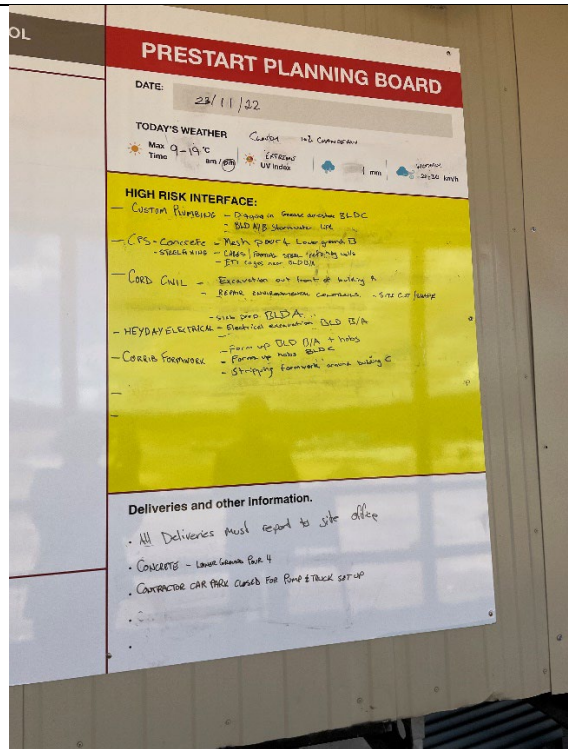 OL
PRESTART PLANNING BOARD
DATE:
23/11/22
TODAY'S WEATHER
CLOUDY
Max 9-19°C
Time am / pm
EXTREME
UV Index
mm
20-30 km/h
HIGH RISK INTERFACE:
- CUSTOM PLUMBING - BLDC
- BLD A/B Stormwater Line
- CPS-Concrete - Mesh pour 4 Lower ground B
- STEELFIXING -
- CORD CIVIL - Excavation out front of building A
- REPAIR ENVIRONMENTAL CONTROLS. -
BLD A.
- HEYDAY ELECTRICAL - Electrical excavation BLD B/A
- CORRIB FORMWORK - Form up BLD B/A + hobs
- Form up hobs BLDC
- Stripping formwork around building C
Deliveries and other information.
• All Deliveries must report to site office
• CONCRETE - LOWER GROUND POUR 4
• CONTRACTOR CAR PARK CLOSED FOR PUMP & TRUCK SET UP